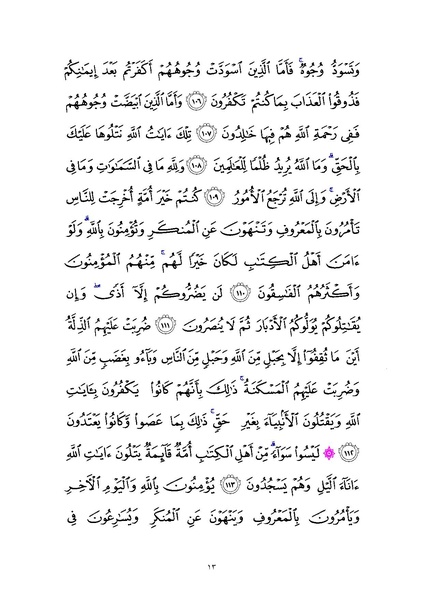 وَتَسْوَدُّ وُجُوهٌ ۚ فَأَمَّا ٱلَّذِينَ ٱسْوَدَّتْ وُجُوهُهُمْ أَكَفَرْتُم بَعْدَ إِيمَٰنِكُمْ
فَذُوقُوا۟ ٱلْعَذَابَ بِمَا كُنتُمْ تَكْفُرُونَ ١٠٦ وَأَمَّا ٱلَّذِينَ ٱبْيَضَّتْ وُجُوهُهُمْ
فَفِى رَحْمَةِ ٱللَّهِ هُمْ فِيهَا خَٰلِدُونَ ١٠٧ تِلْكَ ءَايَٰتُ ٱللَّهِ نَتْلُوهَا عَلَيْكَ
بِٱلْحَقِّ ۗ وَمَا ٱللَّهُ يُرِيدُ ظُلْمًا لِّلْعَٰلَمِينَ ١٠٨ وَلِلَّهِ مَا فِى ٱلسَّمَٰوَٰتِ وَمَا فِى
ٱلْأَرْضِ ۚ وَإِلَى ٱللَّهِ تُرْجَعُ ٱلْأُمُورُ ١٠٩ كُنتُمْ خَيْرَ أُمَّةٍ أُخْرِجَتْ لِلنَّاسِ
تَأْمُرُونَ بِٱلْمَعْرُوفِ وَتَنْهَوْنَ عَنِ ٱلْمُنكَرِ وَتُؤْمِنُونَ بِٱللَّهِ ۗ وَلَوْ
ءَامَنَ أَهْلُ ٱلْكِتَٰبِ لَكَانَ خَيْرًا لَّهُم ۚ مِّنْهُمُ ٱلْمُؤْمِنُونَ
وَأَكْثَرُهُمُ ٱلْفَٰسِقُونَ ١١٠ لَن يَضُرُّوكُمْ إِلَّآ أَذًى ۖ وَإِن
يُقَٰتِلُوكُمْ يُوَلُّوكُمُ ٱلْأَدْبَارَ ثُمَّ لَا يُنصَرُونَ ١١١ ضُرِبَتْ عَلَيْهِمُ ٱلذِّلَّةُ
أَيْنَ مَا ثُقِفُوٓا۟ إِلَّا بِحَبْلٍ مِّنَ ٱللَّهِ وَحَبْلٍ مِّنَ ٱلنَّاسِ وَبَآءُو بِغَضَبٍ مِّنَ ٱللَّهِ
وَضُرِبَتْ عَلَيْهِمُ ٱلْمَسْكَنَةُ ۚ ذَٰلِكَ بِأَنَّهُمْ كَانُوا۟ يَكْفُرُونَ بِـَٔايَٰتِ
ٱللَّهِ وَيَقْتُلُونَ ٱلْأَنۢبِيَآءَ بِغَيْرِ حَقٍّ ۚ ذَٰلِكَ بِمَا عَصَوا۟ وَّكَانُوا۟ يَعْتَدُونَ
١١٢ لَيْسُوا۟ سَوَآءً ۗ مِّنْ أَهْلِ ٱلْكِتَٰبِ أُمَّةٌ قَآئِمَةٌ يَتْلُونَ ءَايَٰتِ ٱللَّهِ
ءَانَآءَ ٱلَّيْلِ وَهُمْ يَسْجُدُونَ ١١٣ يُؤْمِنُونَ بِٱللَّهِ وَٱلْيَوْمِ ٱلْءَاخِرِ
وَيَأْمُرُونَ بِٱلْمَعْرُوفِ وَيَنْهَوْنَ عَنِ ٱلْمُنكَرِ وَيُسَٰرِعُونَ فِى
١٣